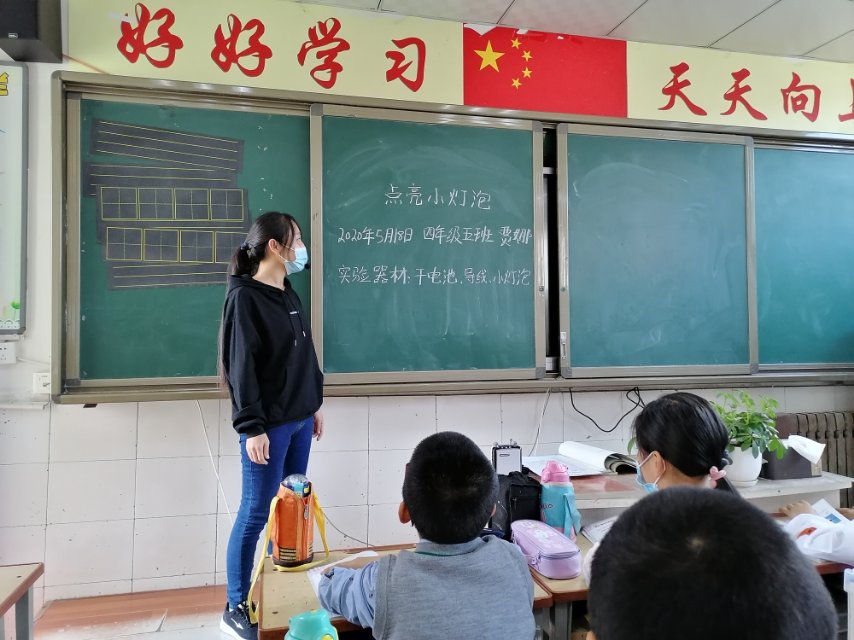 好好学习 天天向上
点亮小灯泡
2020年5月18日 四年级五班 费娜
实验器材：干电池、导线、小灯泡